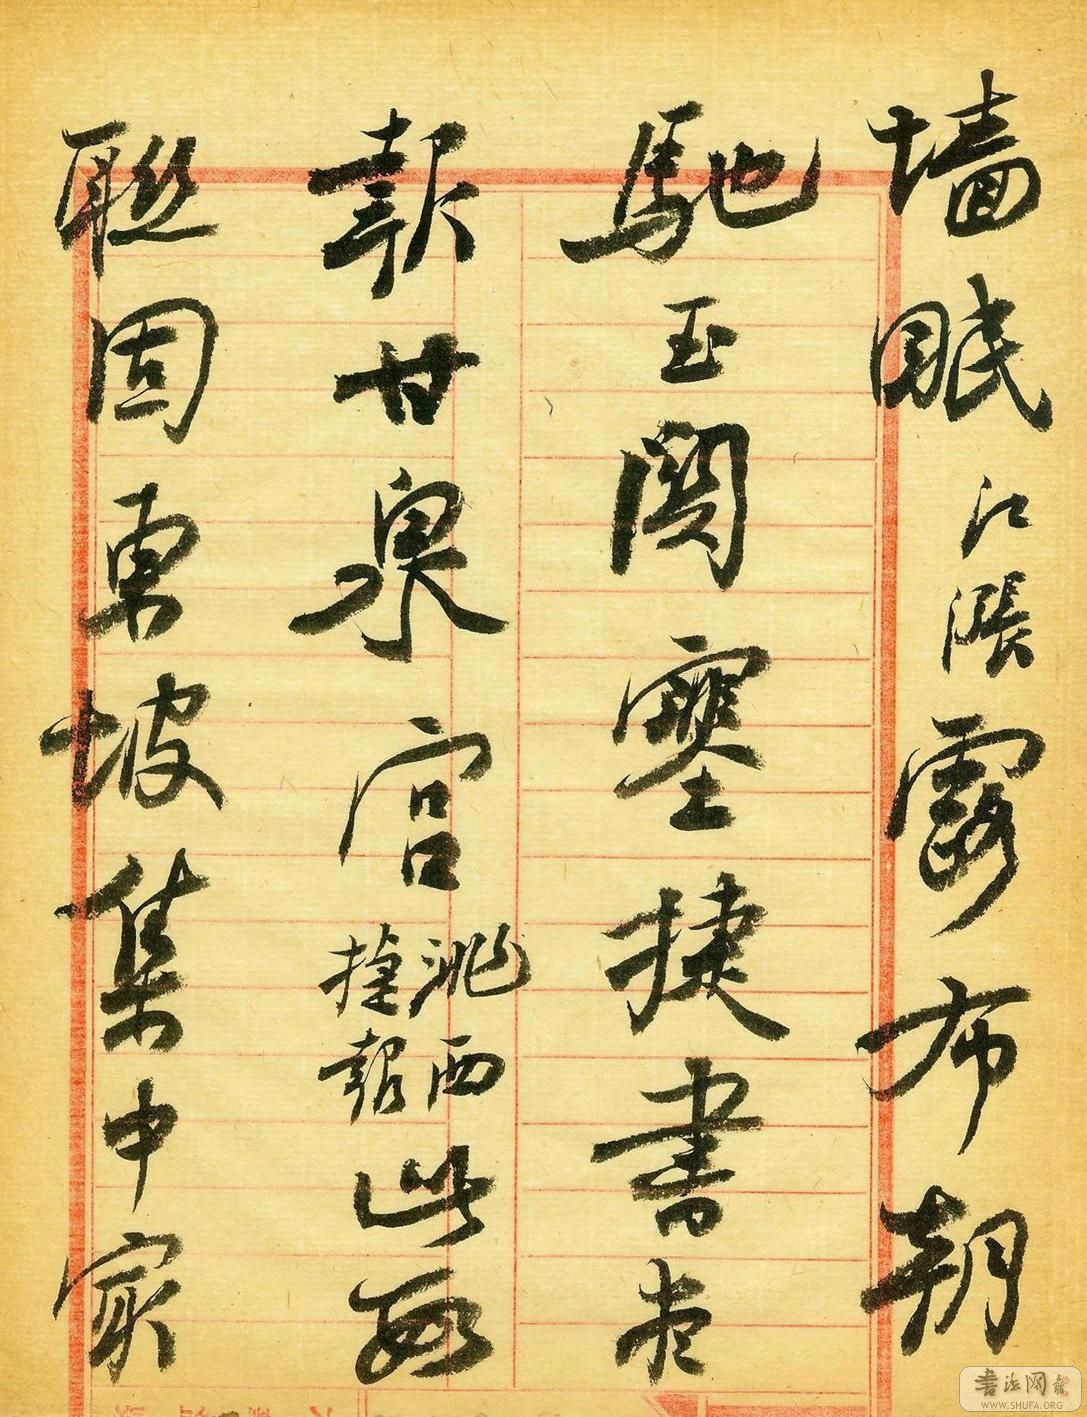 墙眠 江漲 露布朝
馳玉關塞捷書夜
報甘泉宮 洮西捷報 此數
聯固東坡集中實
書法网
WWW.SHUFA.ORG